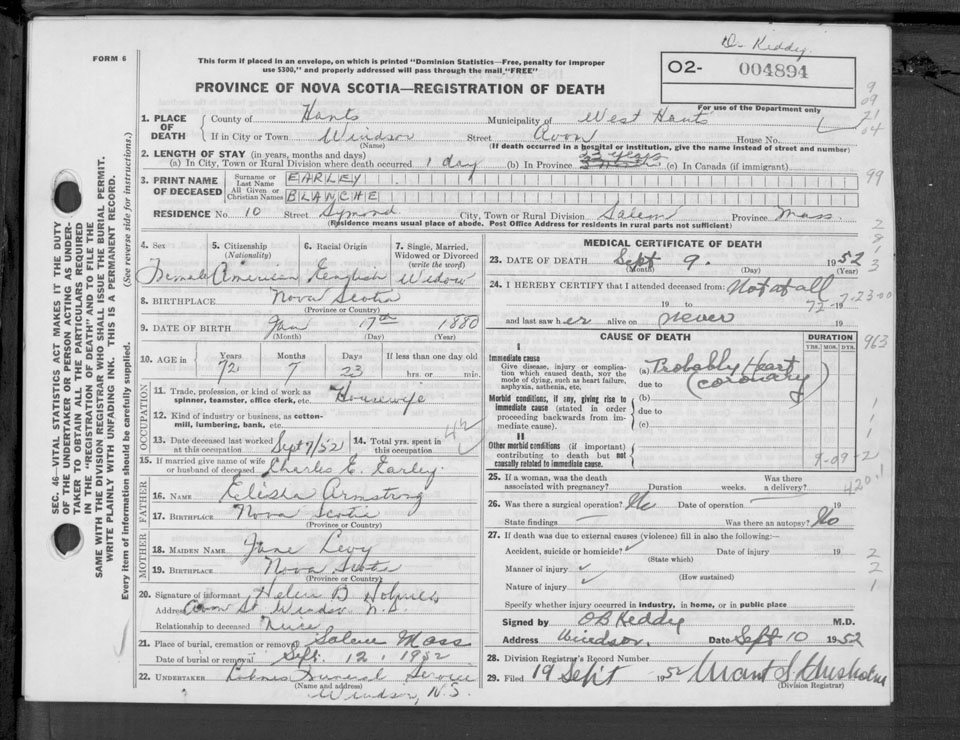 D- Keddy.
FORM 6
This form if placed in an envelope, on which is printed "Dominion Statistics—Free, penalty for improper
use $300," and properly addressed will pass through the mail "FREE"
O2- 004894
For use of the Department only
PROVINCE OF NOVA SCOTIA—REGISTRATION OF DEATH
1. PLACE OF DEATH { County of Hants Municipality of West Hants
If in City or Town Windsor Street Avon House No.
(Name) (If death occurred in a hospital or institution, give the name instead of street and number)
2. LENGTH OF STAY (in years, months and days)
(a) In City, Town or Rural Division where death occurred 1 day (b) In Province (c) In Canada (if immigrant)
3. PRINT NAME OF DECEASED { Surname or Last Name EARLEY
All Given or Christian Names BLANCHE
RESIDENCE No. 10 Street Symond City, Town or Rural Division Salem Province Mass.
(Residence means usual place of abode. Post Office Address for residents in rural parts not sufficient)
4. Sex 5. Citizenship (Nationality) 6. Racial Origin 7. Single, Married, Widowed or Divorced (write the word)
Female American English Widow
8. BIRTHPLACE Nova Scotia
(Province or Country)
9. DATE OF BIRTH Jan 17th 1880
(Month) (Day) (Year)
10. AGE in Years Months Days If less than one day old
72 7 23 hrs. or min.
OCCUPATION
11. Trade, profession, or kind of work as spinner, teamster, office clerk, etc. Housewife
12. Kind of industry or business, as cotton-mill, lumbering, bank, etc.
13. Date deceased last worked at this occupation Sept 7/52 14. Total yrs. spent in this occupation 42
15. If married give name of wife or husband of deceased Charles E. Earley
FATHER
16. NAME Elisha Armstrong
17. BIRTHPLACE Nova Scotia
(Province or Country)
MOTHER
18. MAIDEN NAME Jane Levy
19. BIRTHPLACE Nova Scotia
(Province or Country)
20. Signature of informant Helen B
Address Avon St Windsor N.S.
Relationship to deceased Niece
21. Place of burial, cremation or removal Salem Mass
Date of burial or removal Sept. 12, 1952
22. UNDERTAKER Funeral Service
(Name and address)
Windsor, N.S.
MEDICAL CERTIFICATE OF DEATH
23. DATE OF DEATH Sept 9. 1952
(Month) (Day) (Year)
24. I HEREBY CERTIFY that I attended deceased from: Not at all
19 to 72-7-23-00 19
and last saw her alive on never 19
CAUSE OF DEATH DURATION
YRS. MOS. DYS.
I
Immediate cause
Give disease, injury or complication which caused death, not the mode of dying, such as heart failure, asphyxia, asthenia, etc.
(a) Probably Heart
due to (coronary)
Morbid conditions, if any, giving rise to immediate cause (stated in order proceeding backwards from immediate cause).
(b)
due to
(c)
II
Other morbid conditions (if important) contributing to death but not causally related to immediate cause.
9-09-2
25. If a woman, was the death associated with pregnancy? Duration weeks. Was there a delivery?
26. Was there a surgical operation? No Date of operation 19
State findings Was there an autopsy? No
27. If death was due to external causes (violence) fill in also the following:—
Accident, suicide or homicide? Date of injury 19
(State which)
Manner of injury
(How sustained)
Nature of injury
Specify whether injury occurred in industry, in home, or in public place
Signed by O B Keddy M.D.
Address Windsor. Date Sept 10 1952
28. Division Registrar's Record Number
29. Filed 19 Sept 1952
(Division Registrar)
9
09
21
04
99
2
8
1
3
963
1
1
1
420.1
2
2
1
SEC. 46—VITAL STATISTICS ACT MAKES IT THE DUTY
OF THE UNDERTAKER OR PERSON ACTING AS UNDER-
TAKER TO OBTAIN ALL THE PARTICULARS REQUIRED
IN THE "REGISTRATION OF DEATH" AND TO FILE THE
SAME WITH THE DIVISION REGISTRAR WHO SHALL ISSUE THE BURIAL PERMIT.
WRITE PLAINLY WITH UNFADING INK. THIS IS A PERMANENT RECORD.
Every item of information should be carefully supplied. (See reverse side for instructions.)